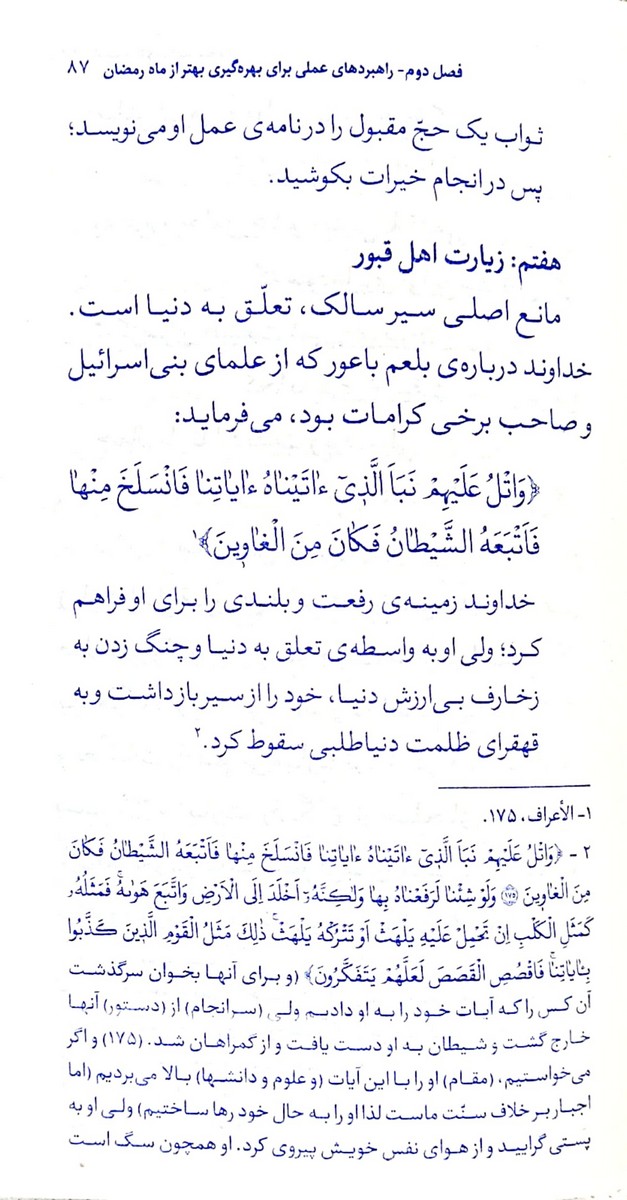 فصل دوم- راهبردهای عملی برای بهره‌گیری بهتر از ماه رمضان ۸۷
ثواب یک حجّ مقبول را در نامه‌ی عمل او می‌نویسد؛
پس در انجام خیرات بکوشید.
هفتم: زیارت اهل قبور
مانع اصلی سیر سالک، تعلّق به دنیا است.
خداوند درباره‌ی بلعم باعور که از علمای بنی‌اسرائیل
و صاحب برخی کرامات بود، می‌فرماید:
﴿وَاتْلُ عَلَيْهِمْ نَبَأَ الَّذِيٓ ءَاتَيْنَاهُ ءَايَاتِنَا فَانْسَلَخَ مِنْهَا
فَأَتْبَعَهُ الشَّيْطَانُ فَكَانَ مِنَ الْغَاوِينَ﴾۱
خداوند زمینه‌ی رفعت و بلندی را برای او فراهم
کرد؛ ولی او به واسطه‌ی تعلق به دنیا و چنگ زدن به
زخارف بی‌ارزش دنیا، خود را از سیر بازداشت و به
قهقرای ظلمت دنیاطلبی سقوط کرد.۲
۱- الأعراف، ۱۷۵.
۲ - ﴿وَاتْلُ عَلَيْهِمْ نَبَأَ الَّذِيٓ ءَاتَيْنَاهُ ءَايَاتِنَا فَانْسَلَخَ مِنْهَا فَأَتْبَعَهُ الشَّيْطَانُ فَكَانَ
مِنَ الْغَاوِينَ ۱۷۵ وَلَوْ شِئْنَا لَرَفَعْنَاهُ بِهَا وَلَٰكِنَّهُۥٓ أَخْلَدَ إِلَى الْأَرْضِ وَاتَّبَعَ هَوَاهُ ۚ فَمَثَلُهُۥ
كَمَثَلِ الْكَلْبِ إِنْ تَحْمِلْ عَلَيْهِ يَلْهَثْ أَوْ تَتْرُكْهُ يَلْهَثْ ۚ ذَٰلِكَ مَثَلُ الْقَوْمِ الَّذِينَ كَذَّبُوا
بِـَٔايَاتِنَا ۚ فَاقْصُصِ الْقَصَصَ لَعَلَّهُمْ يَتَفَكَّرُونَ﴾ (و برای آنها بخوان سرگذشت
آن کس را که آیات خود را به او دادیم ولی (سرانجام) از (دستور) آنها
خارج گشت و شیطان به او دست یافت و از گمراهان شد. (۱۷۵) و اگر
می‌خواستیم، (مقام) او را با این آیات (و علوم و دانشها) بالا می‌بردیم (اما
اجبار بر خلاف سنّت ماست لذا او را به حال خود رها ساختیم) ولی او به
پستی گرایید و از هوای نفس خویش پیروی کرد. او همچون سگ است